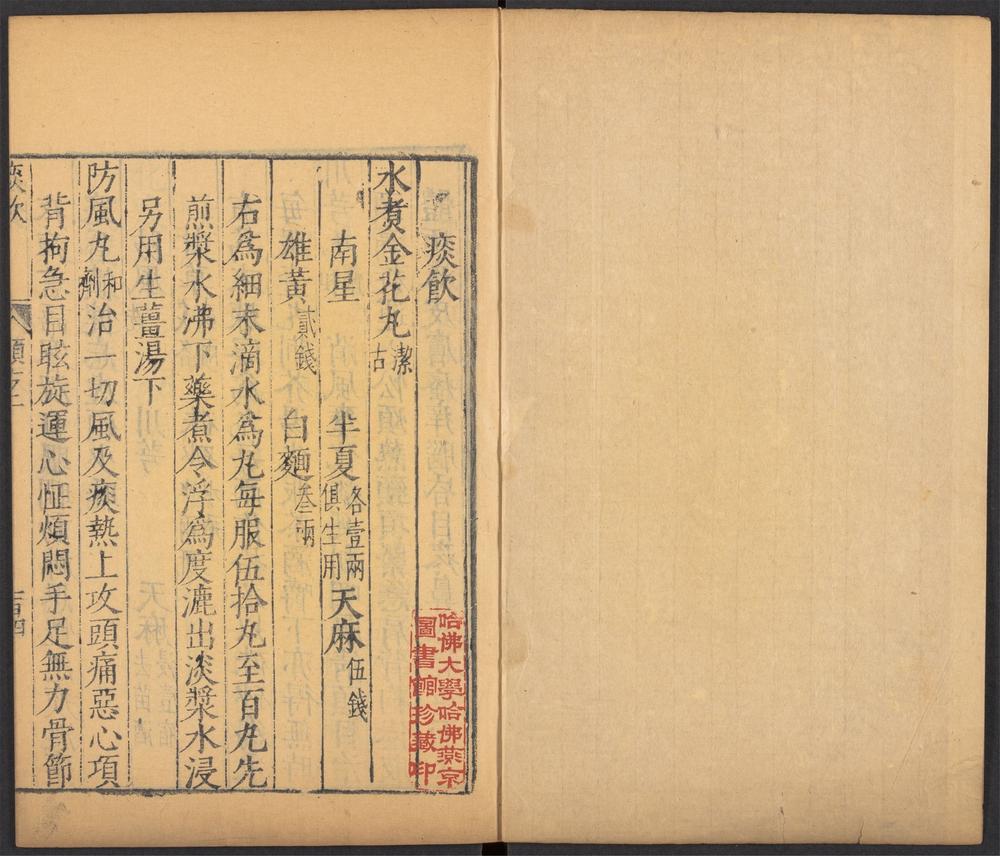 痰飲
水煮金花丸潔古
南星 半夏各壹兩俱生用 天麻伍錢
雄黃貳錢 白麵叁兩
右爲細末滴水爲丸每服伍拾丸至百丸先
煎漿水沸下藥煮令浮爲度漉出淡漿水浸
另用生薑湯下
防風丸和劑治一切風及痰熱上攻頭痛惡心項
背拘急目眩旋運心怔煩悶手足無力骨節
痰飲
哈佛大學哈佛燕京
圖書館珍藏印